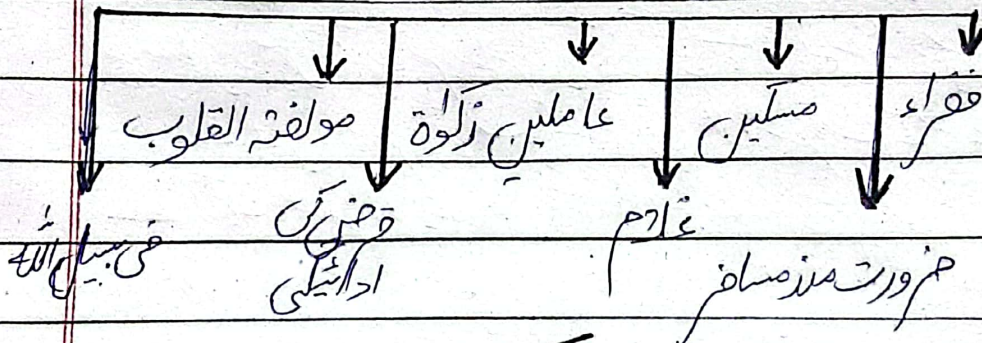 فقراء مسکین عاملین زکوٰة مولفتہ القلوب
ضرورت مند مسافر غلام قرض کی ادائیگی فی سبیل اللہ